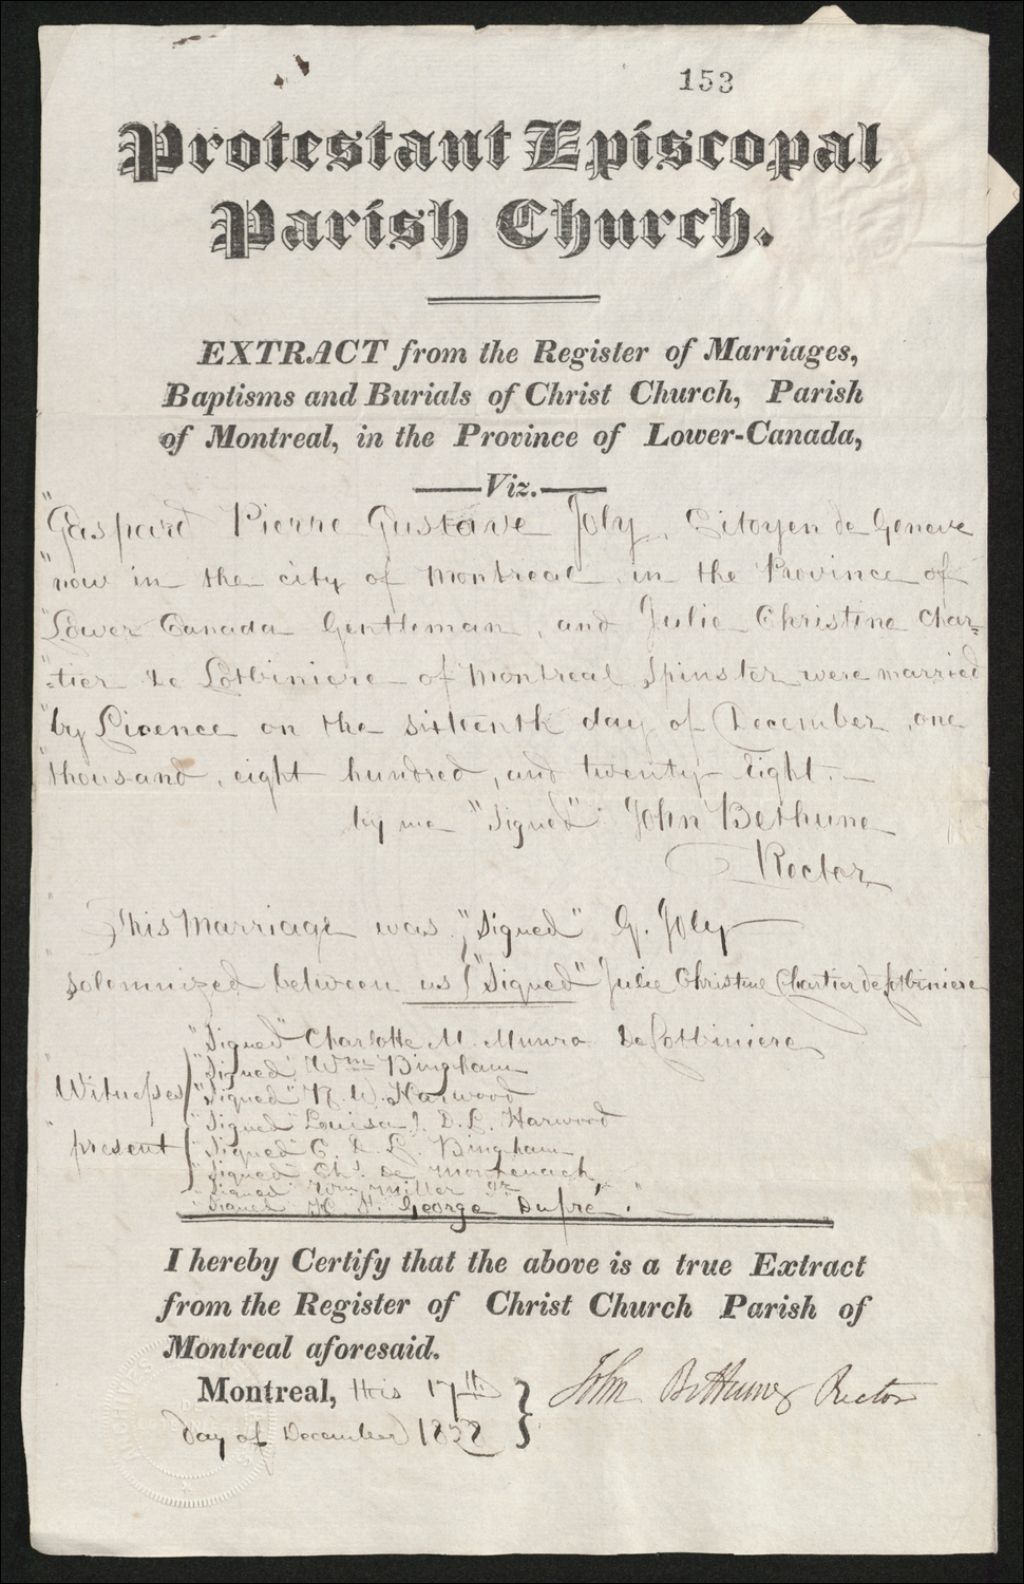 153
Protestant Episcopal
Parish Church.
EXTRACT from the Register of Marriages,
Baptisms and Burials of Christ Church, Parish
of Montreal, in the Province of Lower-Canada,
Viz.
"Gaspard Pierre Gustave Joly, Citoyen de Geneve
"now in the city of Montreal, in the Province of
"Lower Canada Gentleman, and Julie Christine Char=
"=tier de Lotbiniere of Montreal Spinster were married
"by Licence on the sixteenth day of December, one
"thousand, eight hundred, and twenty eight.—
by me "Signed" John Bethune
Rector
This Marriage was "Signed" G. Joly
solemnized between us "Signed" Julie Christine Chartier de Lotbiniere
"Signed" Charlotte M. Munro De Lotbiniere
"Signed" Wm Bingham
Witnesses "Signed" R. W. Harwood
"Signed" Louisa J. D. L. Harwood
present "Signed" C. D. L. Bingham
"Signed" Chs. de Montenach
"Signed" Wm Miller Jr.
"Signed" H. St. George Dupré."
I hereby Certify that the above is a true Extract
from the Register of Christ Church Parish of
Montreal aforesaid.
Montreal, this 17th } John Bethune Rector
Day of December 1828